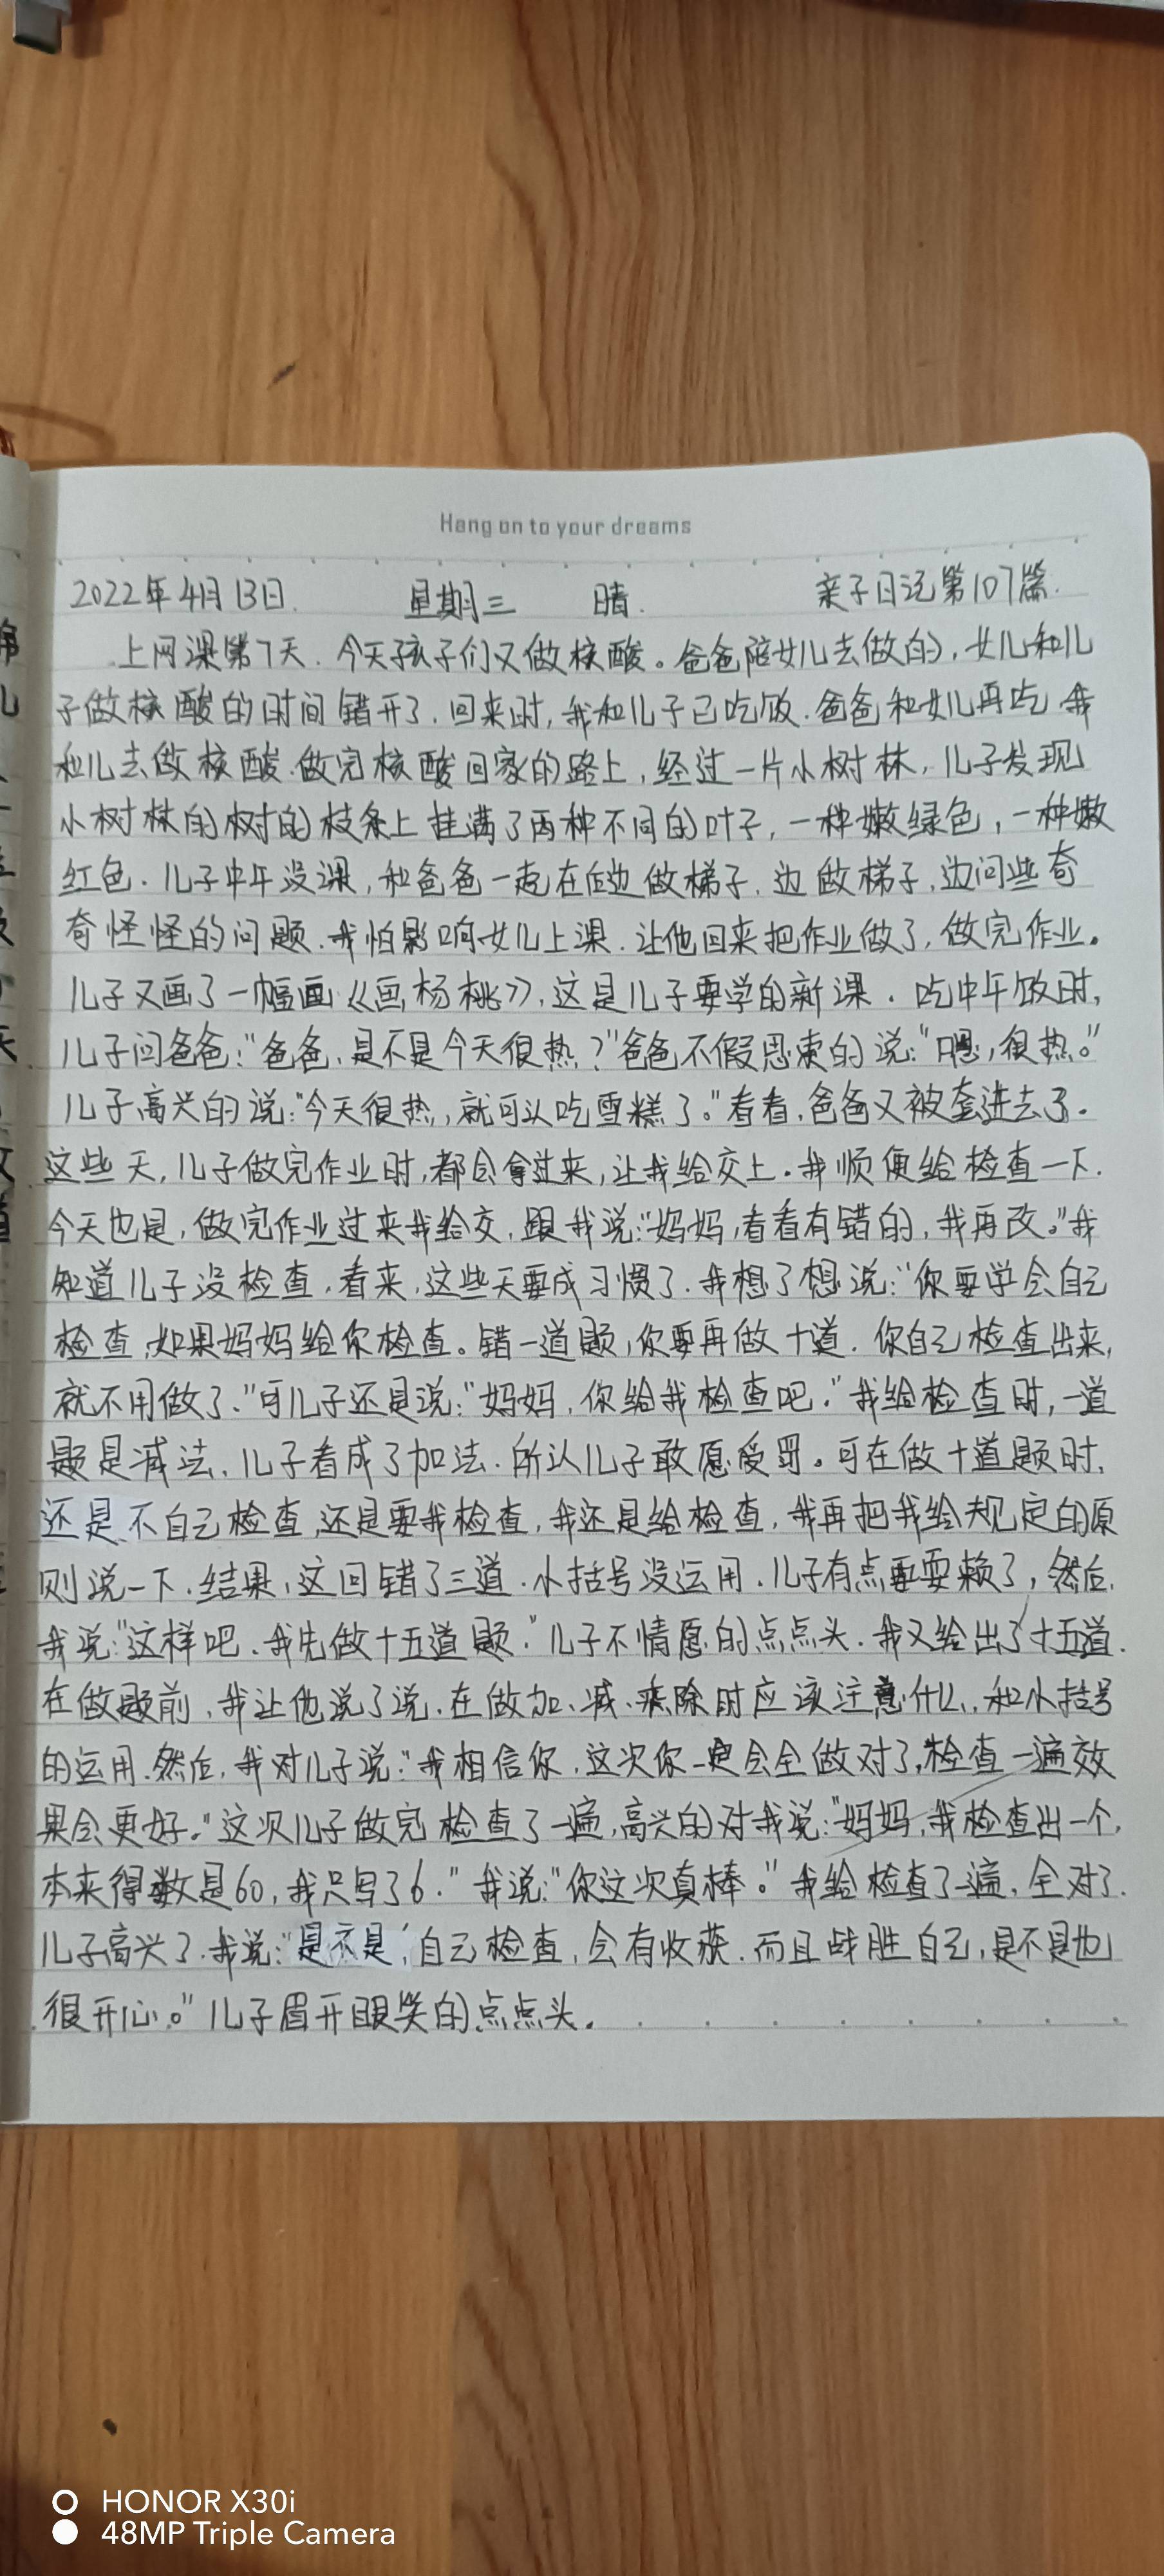 Hang on to your dreams
2022年4月13日. 星期三 晴. 亲子日记第107篇.
上网课第7天.今天孩子们又做核酸。爸爸陪女儿去做的,女儿和儿
子做核酸的时间错开了.回来时,我和儿子已吃饭.爸爸和女儿再吃.我
和儿去做核酸.做完核酸回家的路上,经过一片小树林,儿子发现
小树林的树的枝条上挂满了两种不同的叶子,一种嫩绿色,一种嫩
红色.儿子中午没课,和爸爸一起在后边做梯子.边做梯子,边问些奇
奇怪怪的问题.我怕影响女儿上课.让他回来把作业做了,做完作业.
儿子又画了一幅画《画杨桃》,这是儿子要学的新课.吃中午饭时,
儿子问爸爸:"爸爸,是不是今天很热?"爸爸不假思索的说:"嗯,很热。"
儿子高兴的说:"今天很热,就可以吃雪糕了。"看看,爸爸又被套进去了.
这些天,儿子做完作业时,都会拿过来,让我给交上.我顺便给检查一下.
今天也是,做完作业过来我给交,跟我说:"妈妈,看看有错的,我再改。"我
知道儿子没检查,看来,这些天要成习惯了.我想了想说:"你要学会自己
检查,如果妈妈给你检查。错一道题,你要再做十道.你自己检查出来,
就不用做了."可儿子还是说:"妈妈,你给我检查吧."我给检查时,一道
题是减法,儿子看成了加法.所以儿子敢愿受罚。可在做十道题时,
还是不自己检查,还是要我检查,我还是给检查,我再把我给规定的原
则说一下.结果,这回错了三道.小括号没运用.儿子有点要耍赖了,然后,
我说:"这样吧.我先做十五道题."儿子不情愿的点点头.我又给出了十五道.
在做题前,我让他说了说.在做加、减、乘除时应该注意什么,和小括号
的运用.然后,我对儿子说:"我相信你,这次你一定会全做对了,检查一遍效
果会更好。"这次儿子做完检查了一遍,高兴的对我说:"妈妈,我检查出一个,
本来得数是60,我只写了6."我说:"你这次真棒。"我给检查了一遍,全对了.
儿子高兴了.我说:"是不是,自己检查,会有收获.而且战胜自己,是不是也
很开心。"儿子眉开眼笑的点点头.
HONOR X30i
48MP Triple Camera